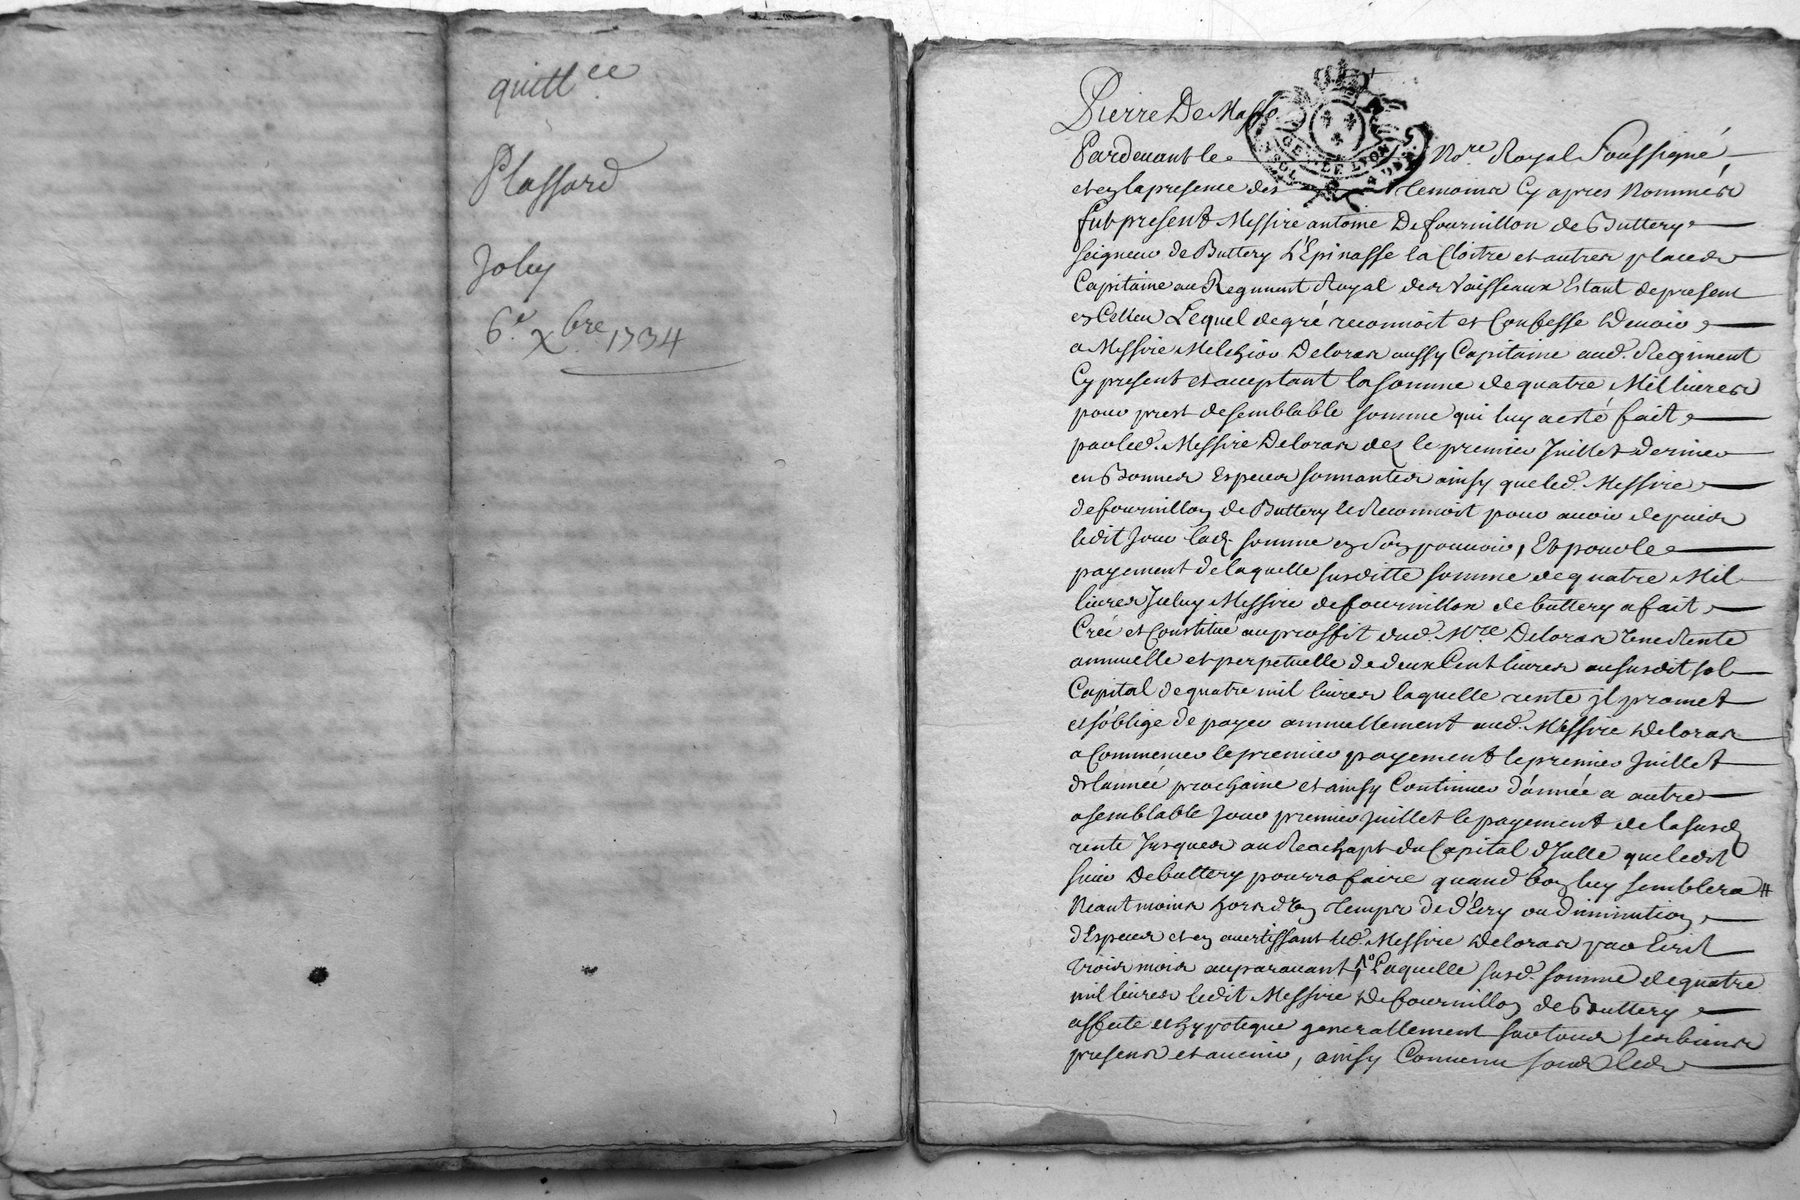 quitt.ce
Plassard
Joly
6.e Xbre 1734
Pierre De Masso
GEN DE LYON
Pardevant le No.re Royal Soussigné
et en la presence des temoins Cy apres Nommés
fut present Messire antoine Defournillon de Buttery
seigneur de Buttery L'Epinasse la Cloitre et autres places
Capitaine au Regiment Royal des Vaisseaux Estant depresent
en Celieu Lequel degré reconnoit et Confesse Devoir
a Messire Melchior Deloras aussy Capitaine aud. Regiment
Cy present et acceptant la somme de quatre Mil livres
pour prest desemblable somme qui luy a esté fait
par led. Messire Deloras dez le premier Juillet dernier
en Bonnes Especes sonnantes ainsy que led. Messire
defournillon de Buttery le Reconnoit pour avoir depuis
ledit Jour lad. somme en Son pouvoir, Et pour le
payement de laquelle susditte somme de quatre Mil
livres Iceluy Messire defournillon de buttery a fait
Créé et Constitué au proffit dud. M.re Deloras Une Rente
annuelle et perpetuelle de deux Cent livres au susdit sol
Capital de quatre mil livres laquelle rente il promet
et s'oblige de payer annuellement aud. Messire Deloras
a Commencer le premier payement le premier Juillet
de lannée prochaine et ainsy Continuer d'année a autre
a semblable Jour premier Juillet le payement de la susd.
rente Jusques au Reachapt du Capital d'Icelle que ledit
sieur Debuttery pourra faire quand bon luy semblera #
Neantmoins hors d'un temps de d'Ecry ou diminution
d'Especes et en avertissant led. Messire Deloras par Ecrit
trois mois auparavant, Laquelle susd. somme de quatre
mil livres ledit Messire Defournillon de Buttery
affecte et hypoteque generallement sur tous ses biens
presens et avenir, ainsy Convenu sous les